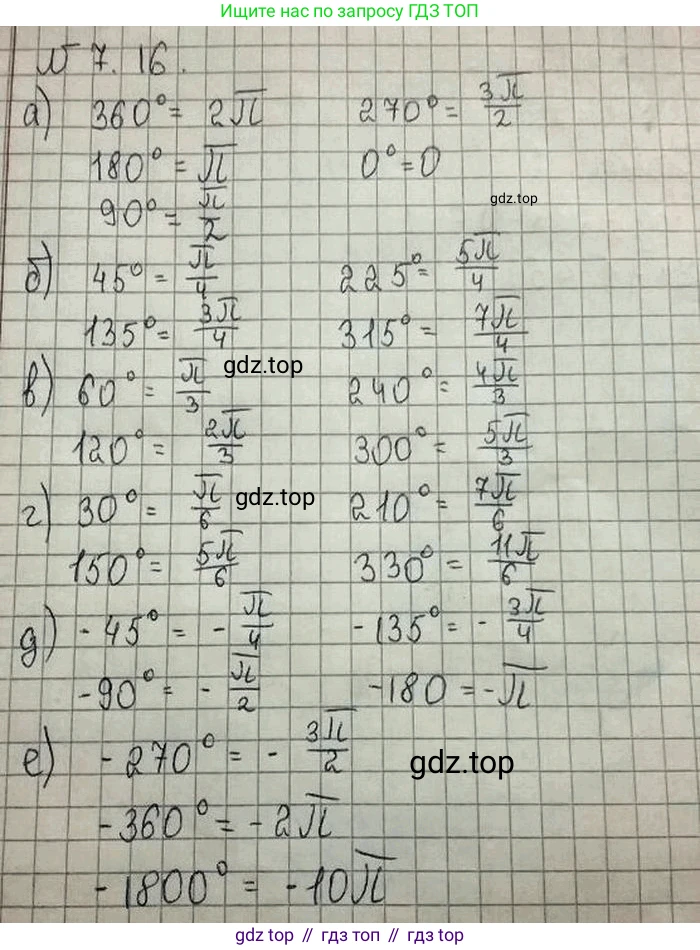 Ищите нас в поиске по запросу ГДЗ ТОП
№ 7.16.
а) 360° = 2π 270° = 3π/2
180° = π 0° = 0
gdz.top
90° = π/2
б) 45° = π/4 225° = 5π/4
135° = 3π/4 315° = 7π/4
gdz.top
в) 60° = π/3 240° = 4π/3
120° = 2π/3 300° = 5π/3
г) 30° = π/6 gdz.top 210° = 7π/6
150° = 5π/6 330° = 11π/6
д) -45° = -π/4 -135° = -3π/4
-90° = -π/2 -180 = -π
е) -270° = -3π/2 gdz.top
-360° = -2π
-1800° = -10π
gdz.top // гдз топ // gdz top // гдз.топ